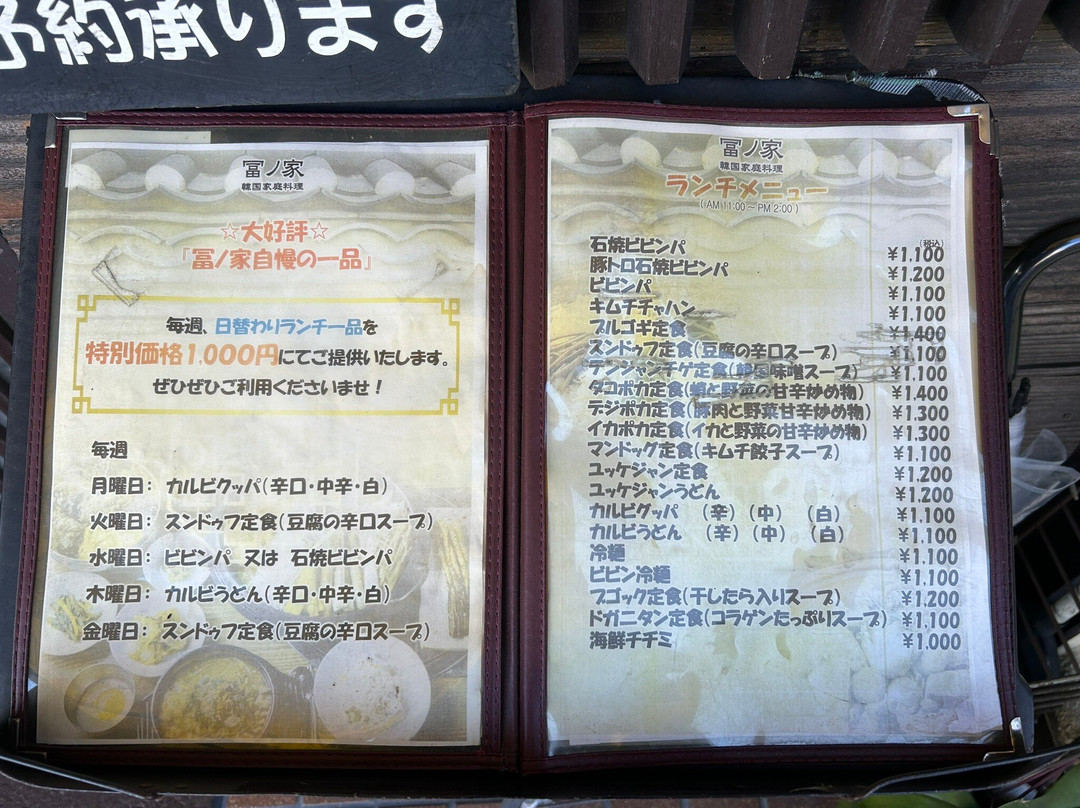 予約承ります
冨ノ家
韓国家庭料理
☆大好評☆
「冨ノ家自慢の一品」
毎週、日替わりランチ一品を
特別価格1.000円にてご提供いたします。
ぜひぜひご利用くださいませ！
毎週
月曜日： カルビクッパ（辛口・中辛・白）
火曜日： スンドゥフ定食（豆腐の辛口スープ）
水曜日： ビビンパ 又は 石焼ビビンパ
木曜日： カルビうどん（辛口・中辛・白）
金曜日： スンドゥフ定食（豆腐の辛口スープ）
冨ノ家
韓国家庭料理
ランチメニュー
（AM 11:00～PM 2:00）
（税込）
石焼ビビンパ ￥1.100
豚トロ石焼ビビンパ ￥1.200
ビビンパ ￥1.100
キムチチャハン ￥1.100
プルコギ定食 ￥1.400
スンドゥフ定食（豆腐の辛口スープ） ￥1.100
テンジャンチゲ定食（韓国味噌スープ） ￥1.100
タコポカ定食（蛸と野菜の甘辛炒め物） ￥1.400
デジポカ定食（豚肉と野菜甘辛炒め物） ￥1.300
イカポカ定食（イカと野菜の甘辛炒め物） ￥1.300
マンドッグ定食（キムチ餃子スープ） ￥1.100
ユッケジャン定食 ￥1.200
ユッケジャンうどん ￥1.200
カルビグッパ （辛）（中） （白） ￥1.100
カルビうどん （辛）（中） （白） ￥1.100
冷麺 ￥1.100
ビビン冷麺 ￥1.100
プゴック定食（干したら入りスープ） ￥1.200
ドガニタン定食（コラゲンたっぷりスープ） ￥1.100
海鮮チヂミ ￥1.000